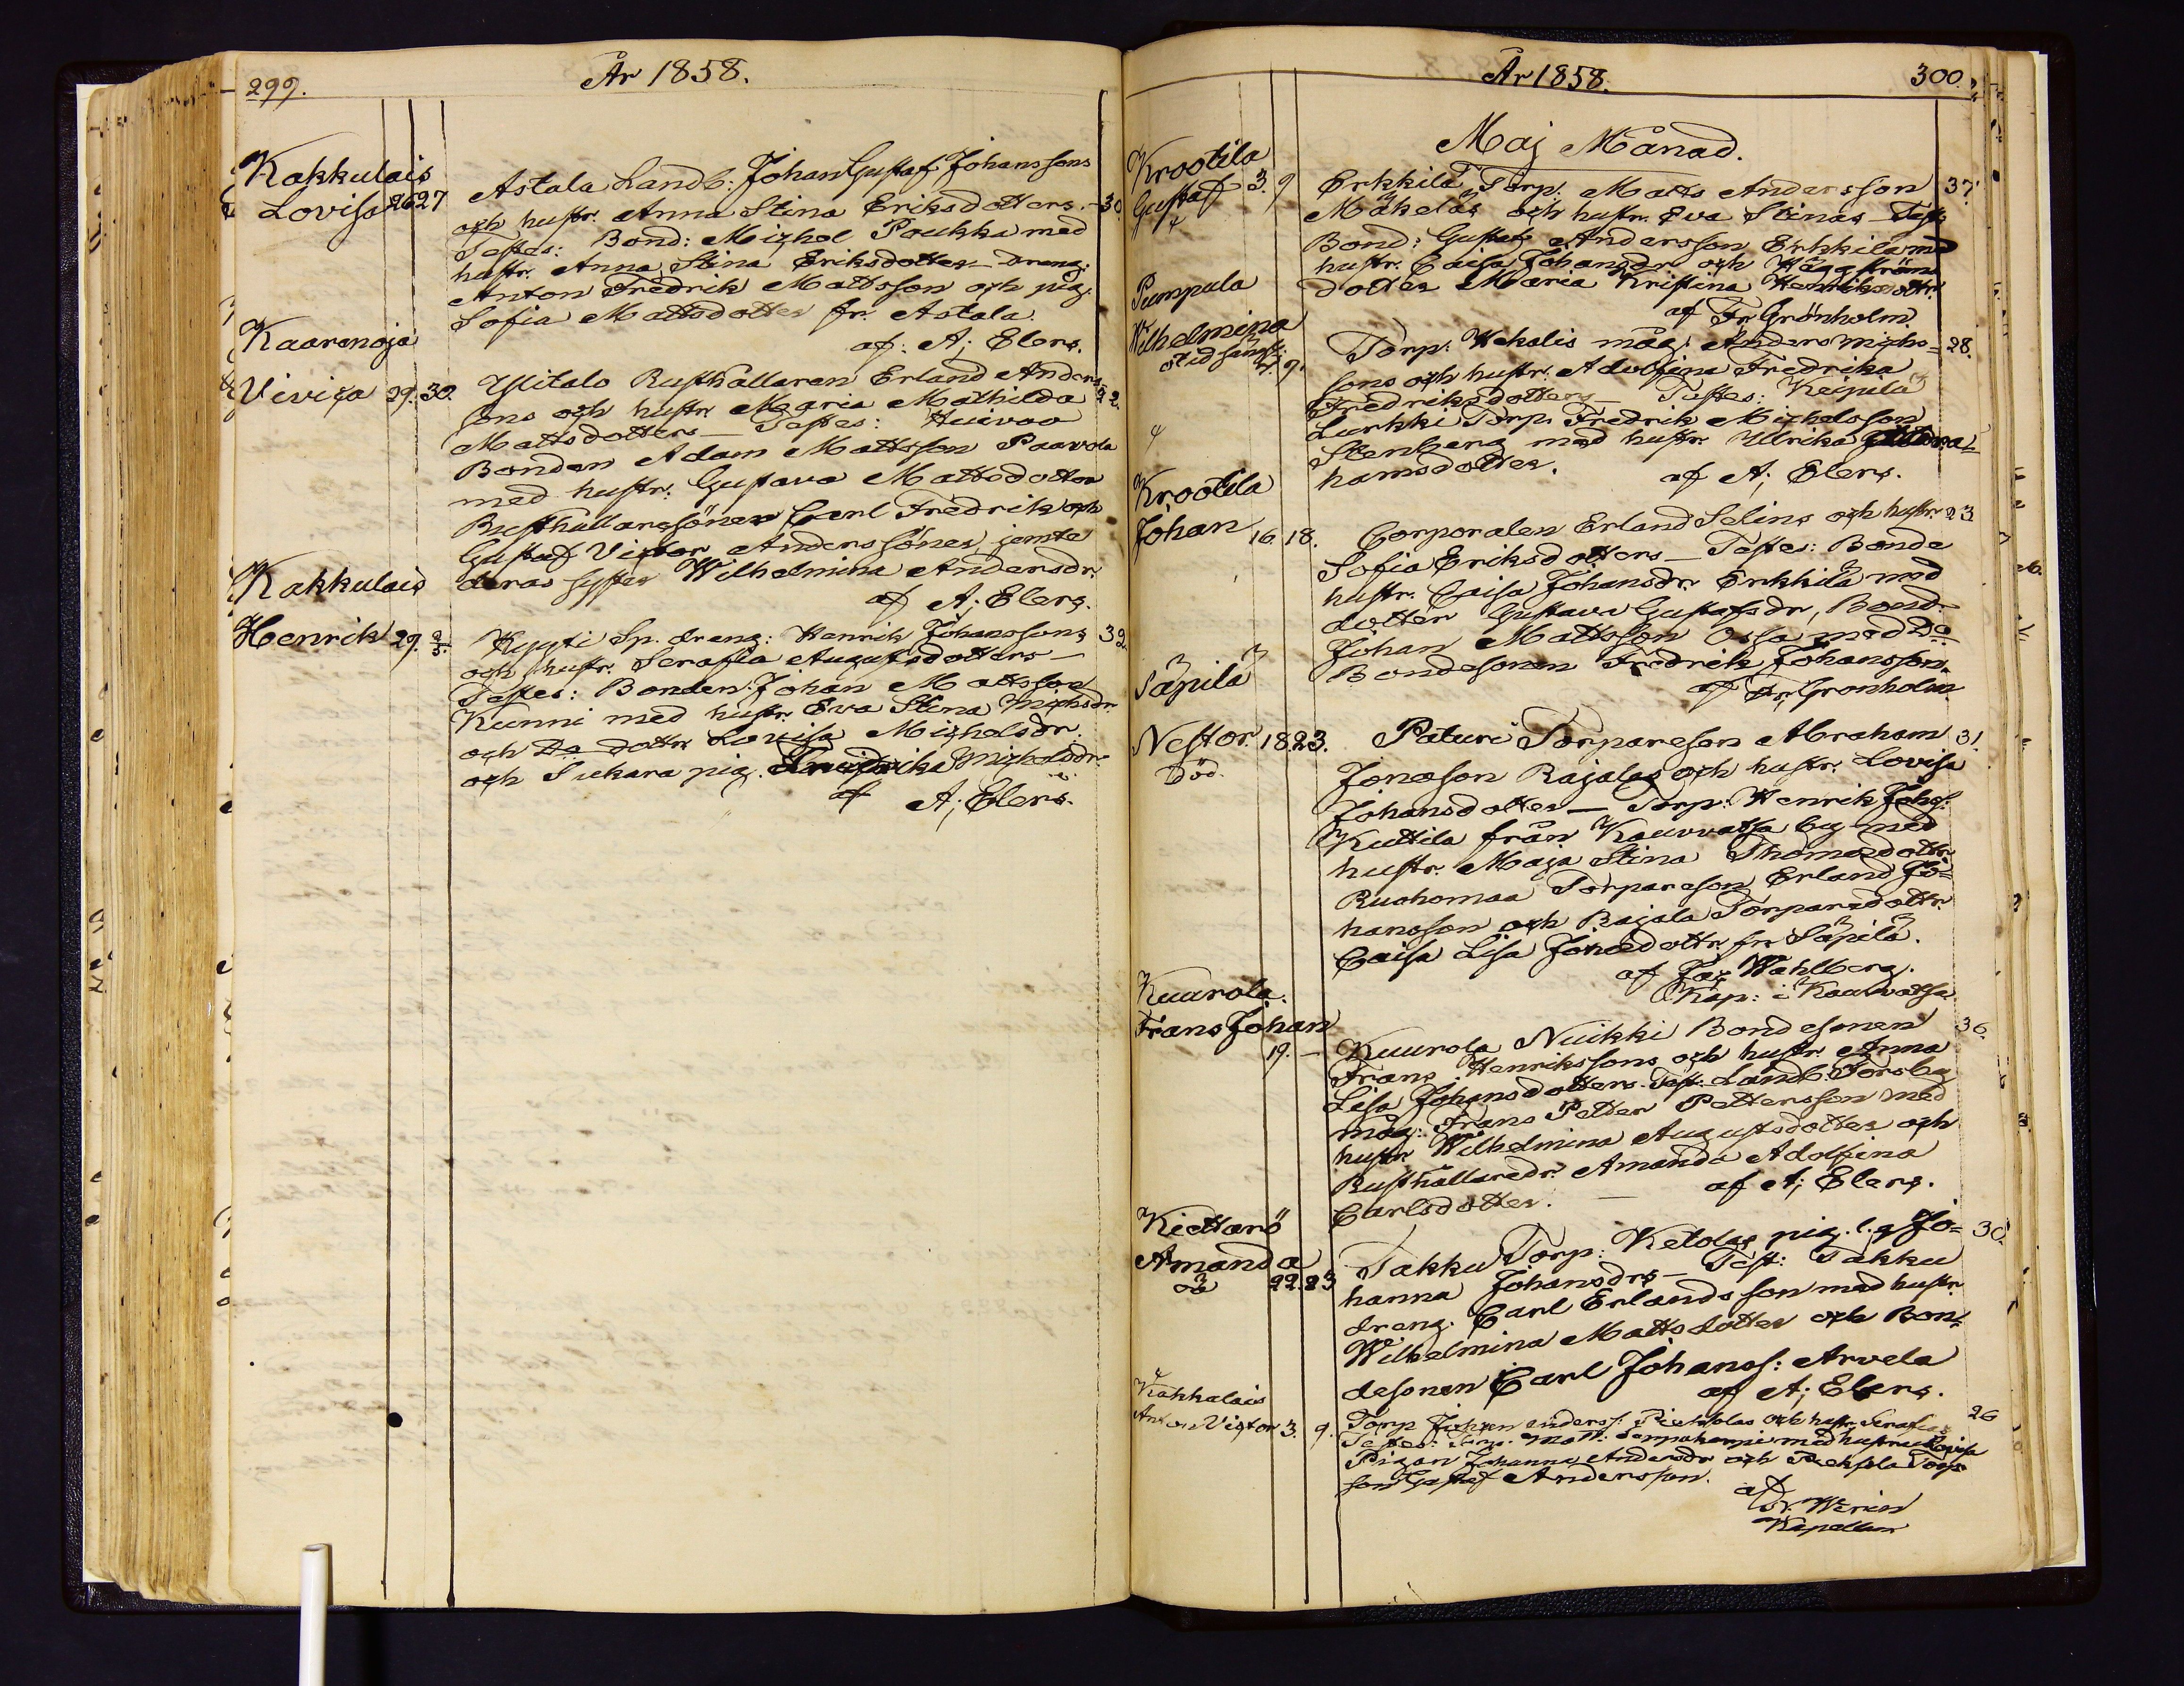 299.
År 1858.
Kakkulais
Lovisa 26 27
Astala Landb: Johan Gustaf Johanssons
och hustr. Anna Stina Eriksdotters - 30
Testes: Bond: Michel Poukka med
hustr. Anna Stina Eriksdotter - Dreng:
Anton Fredrik Mattsson och pig.
Sofia Mattsdotter fr. Astala.
af: A; Elers.
Kaaronoja
Viviça 29. 30.
Ylitalo Rusthållaren Erland Anders- 22.
sons och hustr. Maria Mathilda
Mattsdotters - Testes: Huivoo
Bonden Adam Mattsson Paavola
med hustr. Gustava Mattsdotter
Rusthållaresönen Carl Fredrik och
Gustaf Victor Anderssöner jemte
deras syster Wilhelmina Andersdr.
af A; Elers.
Kakkulais
Henrik 29. 2/5.
Kyyti Sp. dreng: Henrik Johanssons 32.
och hustr. Serafia Augustsdotters -
Testes: Bonden Johan Mattsson
Kunni med hustr. Eva Stina Michsdr.
och Do dottr. Lovisa Michelsdr.
och Sukara pig. Fredrika Michelsdr.
af A; Elers.
År 1858.
300.
Maj Månad.
Krootila
Gustaf 3. 9
Erkkilä Torp. Matts Andersson 37.
Mäkeläs och hustr. Eva Stinas - Test:
Bond: Gustaf Andersson Erkkilä med
hustr. Caisa Johansdr. och Häggströms
dotter Maria Kristina Henriksdottr.
af Fr. Grönholm
Pumpula
Wilhelmina
9.
Torp: Hekalis måg: Anders Michs- 28.
sons och hustr. Adolfina Fredrika
Fredriksdotters - Testes: Keipilä
Lurkki Torp. Fredrik Michelsson
Stenberg med hustr. Ulrika
hamsdotter.
af A; Elers.
Krootila
Johan 16 18.
Corporalen Erland Selins och hustr. 23
Sofia Eriksdotters - Testes: Bonde
hustr. Caisa Johansdr. Erkkilä med
dotter Gustava Gustafsdr, Bond.
Johan Mattsson Ossa med Do
Bondesonen Fredrik Johansson.
af Fr; Grönholm
Säpilä
Nestor. 18 23.
Död.
Paturi Torpareson Abraham 31.
Jonasson Rajalas och hustr. Lovisa
Johansdotter - Torp: Henrik Johs:
Kuttila från Kauvatsa by med
hustr. Maja Stina Thomasdottr.
Ruohomaa Torpareson Erland Jo-
hansson och Rajala Torparedottr.
Caisa Lisa Jonaedottr. fr. Säpilä.
af Jac Wahlberg.
Kap: i Kauvatsa
Kuurola.
Frans Johan
19. -
Kuurola Nuikki Bondesonen 36.
Frans Henrikssons och hustr. Anna
Lisa Johansdotters - Test: Landb: Torsby
måg: Frans Petter Pettersson med
hustr. Wilhelmina Augustsdotter och
Rusthållaredr. Amanda Adolfina
Carlsdotter. - af A; Elers.
Kiettarö
Amanda
22. 23
Takku Torp: Ketolas pig. l.g Jo- 30.
hanna Johansdrs - Test: Takku
dreng. Carl Erlandsson med hustr.
Wilhelmina Mattsdotter och Bon-
desonen Carl Johanss: Arvela
af A; Elers.
Kakkulais
Anton Victor 3. 9.
Torp Johan Anderss: Piehtolas och hustr. Serafias 26
Testes: Torp. Matt: Sempukampi med hustru Lovisa
Pigan Johanna Andersdr och Piehtola Torp.
son Gustaf Andersson.
af
Fr. Werin
Kapellan